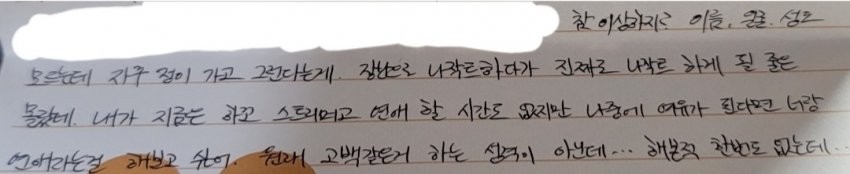 참 이상하지? 이름, 얼굴, 성도
모르는데 자꾸 정이 가고 그런다는게. 장난으로 나작트하다가 진짜로 나작트 하게 될 줄은
몰랐네. 내가 지금은 하꼬 스트리머고 연애 할 시간도 없지만 나중에 여유가 된다면 너랑
연애라는걸 해보고 싶어. 원래 고백같은거 하는 성격이 아닌데... 해본적 한번도 없는데..